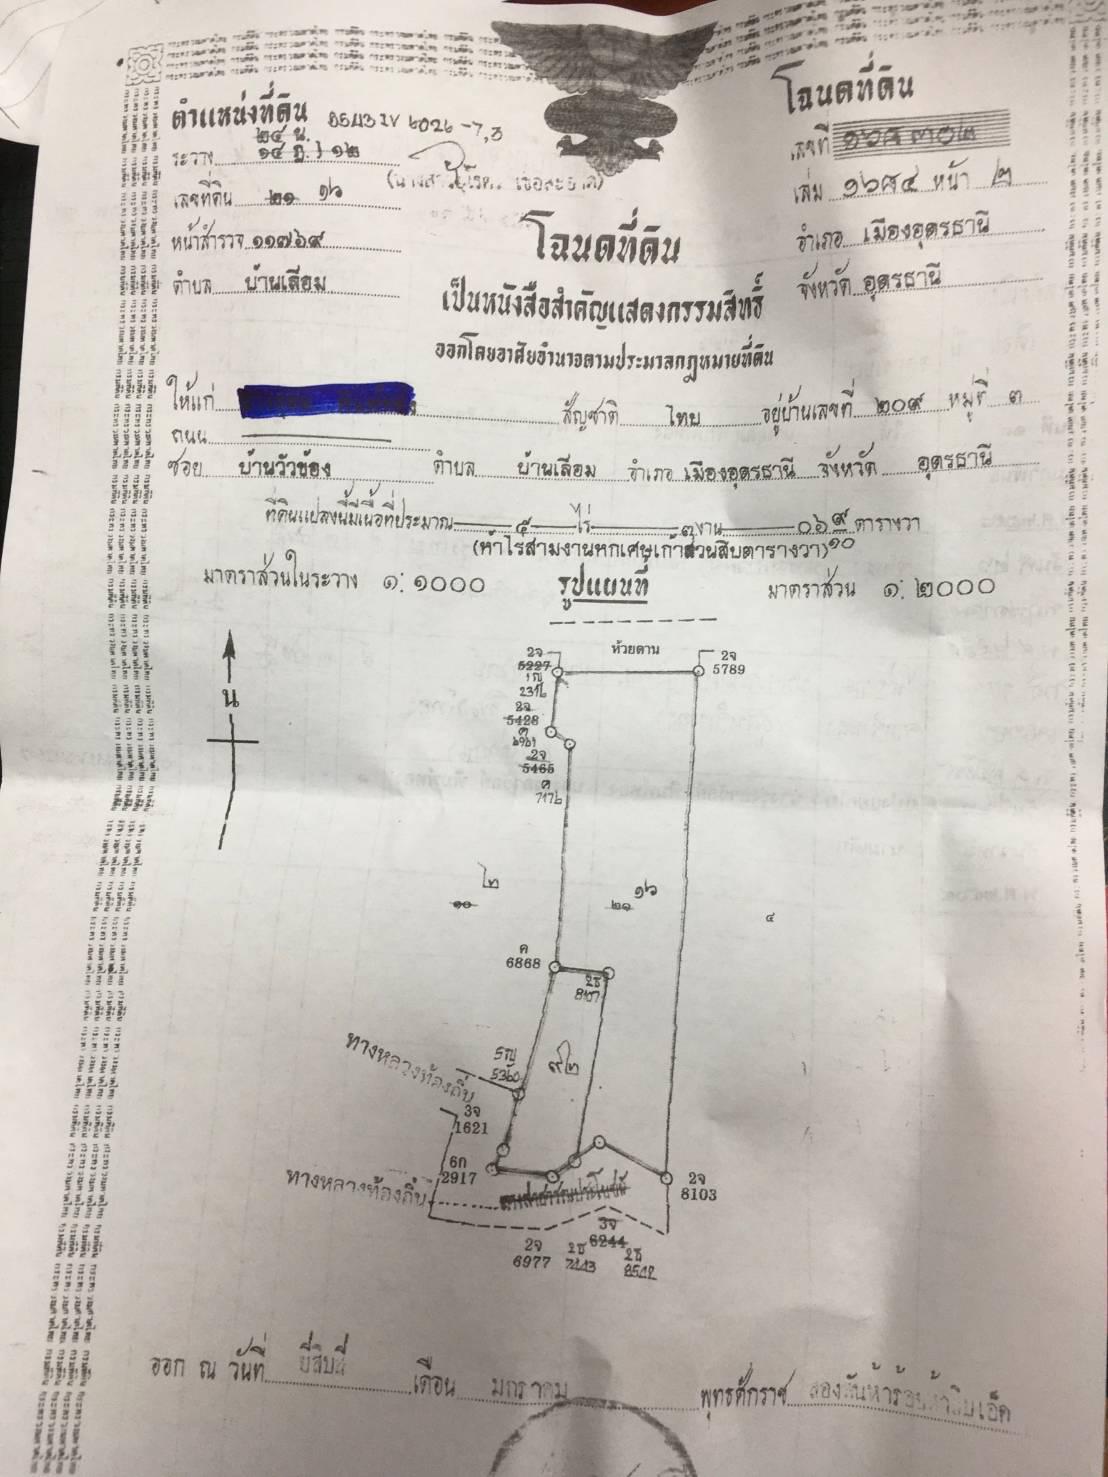 ตำแหน่งที่ดิน
๒๔ น.
ระวาง ๑๔ ฎ. ๑๒
เลขที่ดิน ๒๑ ๑๖
หน้าสำรวจ ๑๑๗๖๙
ตำบล บ้านเลื่อม
โฉนดที่ดิน
เลขที่
เล่ม หน้า ๒
อำเภอ เมืองอุดรธานี
จังหวัด อุดรธานี
โฉนดที่ดิน
เป็นหนังสือสำคัญแสดงกรรมสิทธิ์
ออกโดยอาศัยอำนาจตามประมวลกฎหมายที่ดิน
ให้แก่ สัญชาติ ไทย อยู่บ้านเลขที่ ๒๐๙ หมู่ที่ ๓
ถนน
ซอย บ้านวัวข้อง ตำบล บ้านเลื่อม อำเภอ เมืองอุดรธานี จังหวัด อุดรธานี
ที่ดินแปลงนี้มีเนื้อที่ประมาณ ๕ ไร่ ๓ งาน ๐๖ ๙/๑๐ ตารางวา
(ห้าไร่สามงานหกเศษเก้าส่วนสิบตารางวา)
มาตราส่วนในระวาง ๑:๑๐๐๐ รูปแผนที่ มาตราส่วน ๑:๒๐๐๐
น
ห้วยดาน
2จ
5227
2จ
5789
2จ
5428
2จ
5465
ค
7176
๒
๑๐
๑๖
๒๑
๔
ค
6868
๙๒
ทางหลวงท้องถิ่น
5360
3จ
1621
6ก
2917
ทางหลวงท้องถิ่น
ทางสาธารณประโยชน์
2จ
8103
2จ
6977
3จ
6244
ออก ณ วันที่ ยี่สิบสี่ เดือน มกราคม พุทธศักราช สองพันห้าร้อยห้าสิบเอ็ด